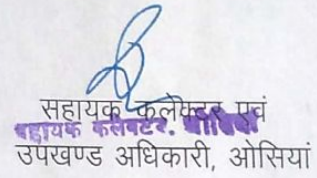 सहायक कलेक्टर एवं
सहायक कलेक्टर.
उपखण्ड अधिकारी, ओसियां